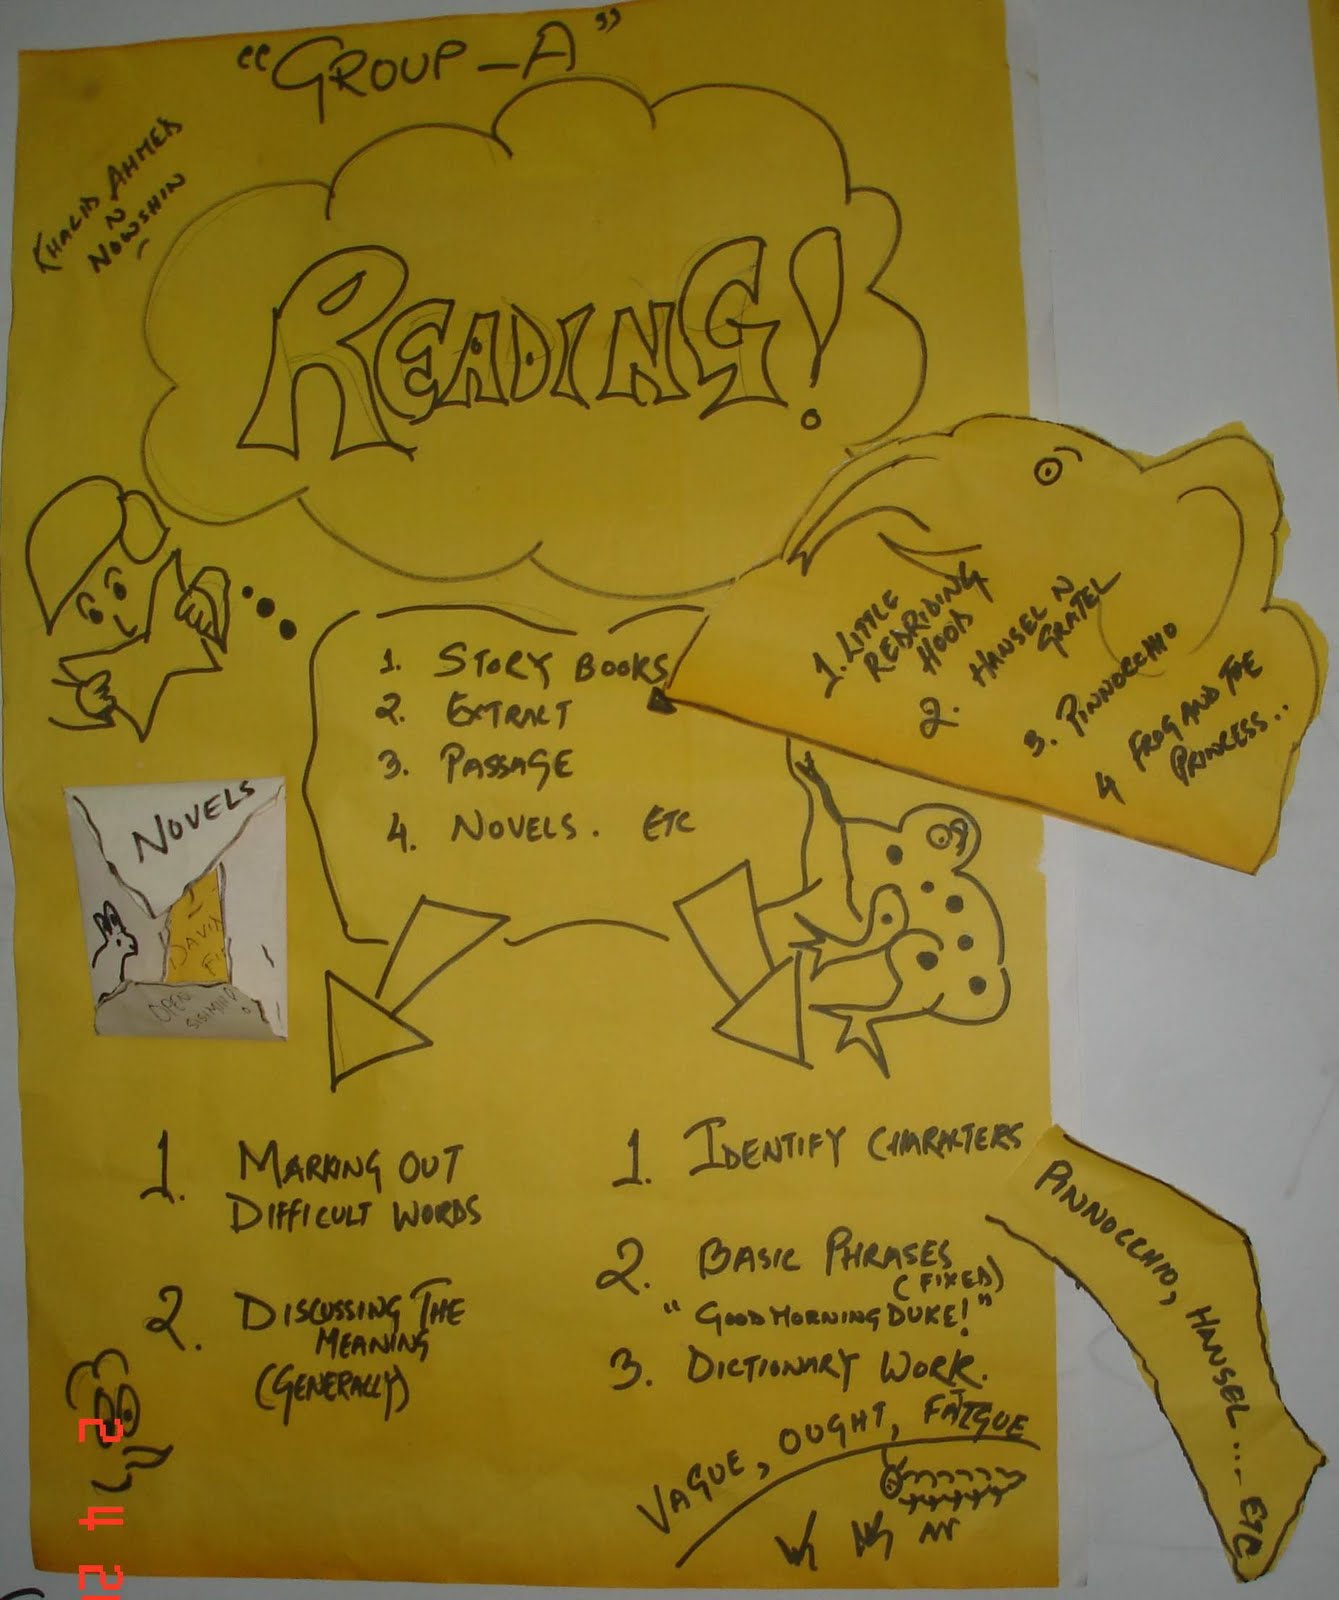 "GROUP-A"
KHALID AHMED
N
NOWSHIN
READING!
1. STORY BOOKS
2. EXTRACT
3. PASSAGE
4. NOVELS. ETC
1. LITTLE
REDRIDING
HOOD
2. HANSEL N
GRATEL
3. PINNOCCHIO
4 FROG AND THE
PRINCESS...
NOVELS
DAVID
OPEN
1. MARKING OUT
DIFFICULT WORDS
2. DISCUSSING THE
MEANING
(GENERALLY)
1. IDENTIFY CHARACTERS
2. BASIC PHRASES
(FIXED)
"GOOD MORNING DUKE!"
3. DICTIONARY WORK.
VAGUE, OUGHT, FATIGUE
PINNOCCHIO, HANSEL... ETC
2 4 2